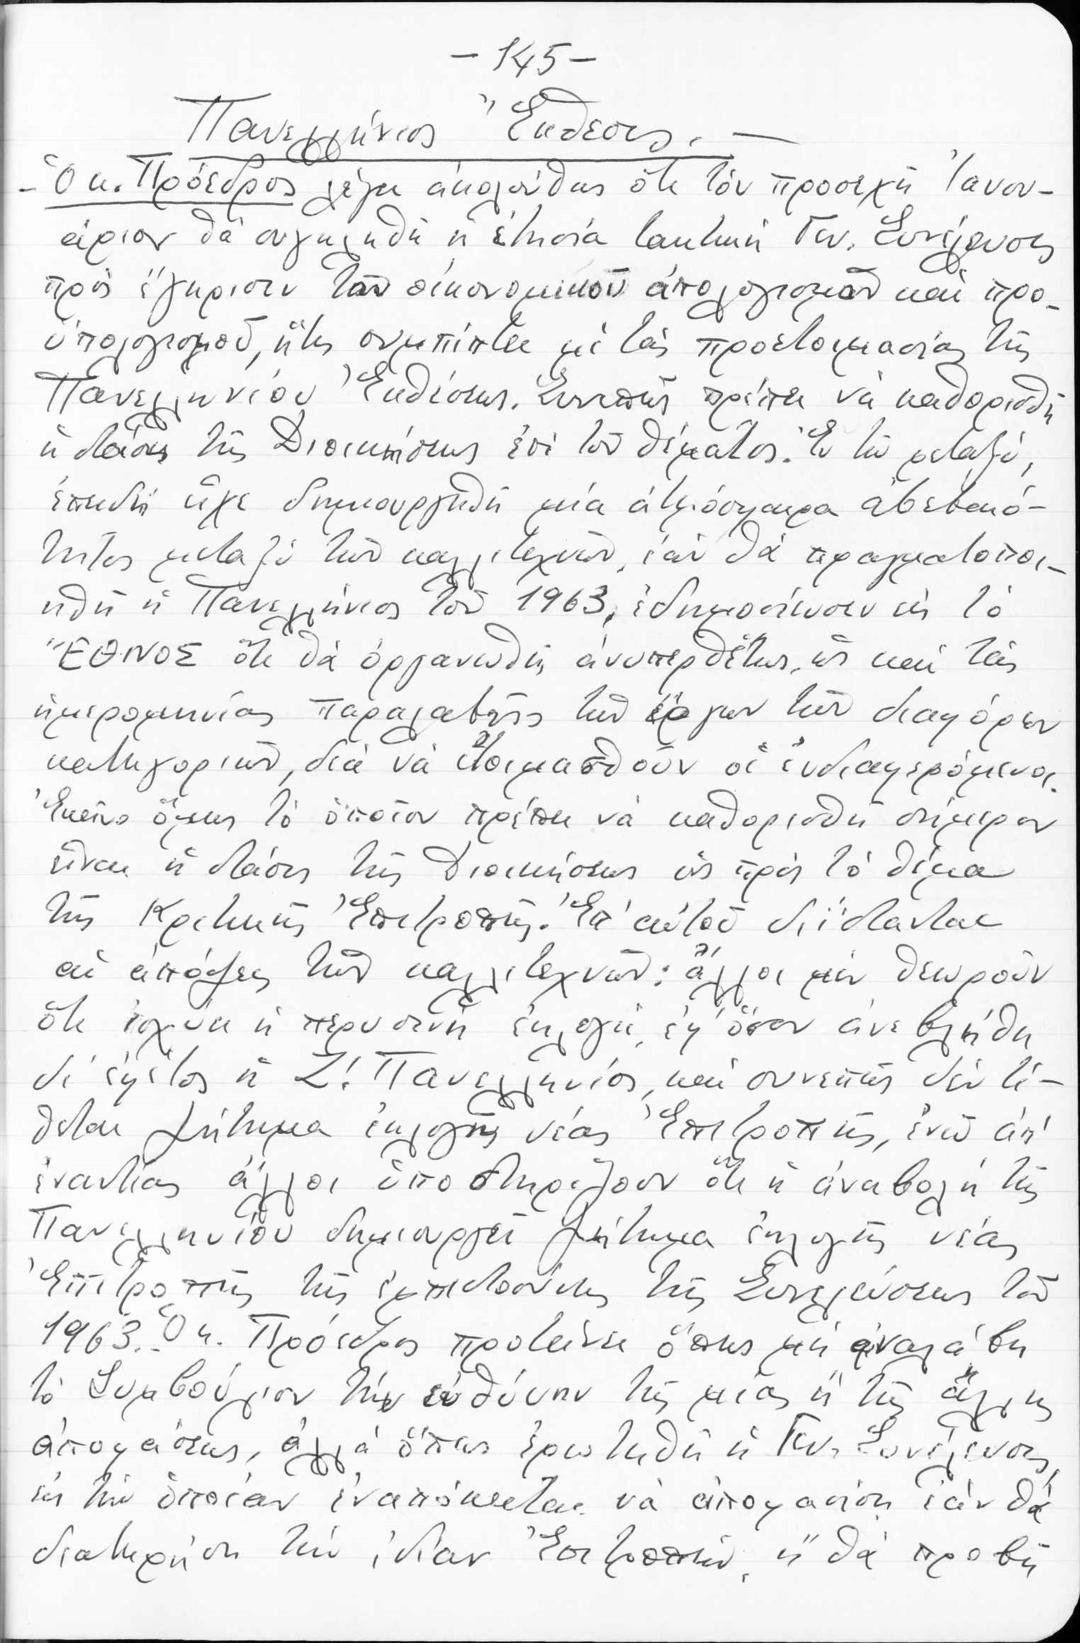 - 145 -
Πανελλήνιος Ἔκθεσις. —
- Ὁ κ. Πρόεδρος λέγει ἀκολούθως ὅτι τόν προσεχῆ Ἰανου-
άριον θά συγκληθῆ ἡ ἐτησία τακτική Γεν. Συνέλευσις
πρός ἔγκρισιν τοῦ οἰκονομικοῦ ἀπολογισμοῦ καί προ-
ϋπολογισμοῦ, ἥτις συμπίπτει μέ τάς προετοιμασίας τῆς
Πανελληνίου Ἐκθέσεως. Συνεπῶς πρέπει νά καθορισθῆ
ἡ στάσις τῆς Διοικήσεως ἐπί τοῦ θέματος. Ἐν τῷ μεταξύ,
ἐπειδή εἶχε δημιουργηθῆ μία ἀτμόσφαιρα ἀβεβαιό-
τητος μεταξύ τῶν καλλιτεχνῶν, ἐάν θά πραγματοποι-
ηθῆ ἡ Πανελλήνιος τοῦ 1963, ἐδημοσίευσεν εἰς τό
"ΕΘΝΟΣ ὅτι θά ὀργανωθῆ ἀνυπερθέτως, ὡς καί τάς
ἡμερομηνίας παραλαβῆς τῶν ἔργων τῶν διαφόρων
κατηγοριῶν, διά νά ἑτοιμασθοῦν οἱ ἐνδιαφερόμενοι.
Ἐκεῖνο ὅμως τό ὁποῖον πρέπει νά καθορισθῆ σήμερον
εἶναι ἡ στάσις τῆς Διοικήσεως ὡς πρός τό θέμα
τῆς Κριτικῆς Ἐπιτροπῆς. Ἐπ' αὐτοῦ διΐστανται
αἱ ἀπόψεις τῶν καλλιτεχνῶν: ἄλλοι μέν θεωροῦν
ὅτι ἰσχύει ἡ περυσινή ἐκλογή, ἐφ' ὅσον ἀνεβλήθη
δι' ἐφέτος ἡ Ζ'. Πανελλήνιος, καί συνεπῶς δέν τί-
θεται ζήτημα ἐκλογῆς νέας Ἐπιτροπῆς, ἐνῶ ἀπ'
ἐναντίας ἄλλοι ὑποστηρίζουν ὅτι ἡ ἀναβολή τῆς
Πανελληνίου δημιουργεῖ ζήτημα ἐκλογῆς νέας
Ἐπιτροπῆς τῆς ἐμπιστοσύνης τῆς Συνελεύσεως τοῦ
1963. Ὁ κ. Πρόεδρος προτείνει ὅπως μή ἀναλάβη
τό Συμβούλιον τήν εὐθύνην τῆς μίας ἤ τῆς ἄλλης
ἀποφάσεως, ἀλλά ὅπως ἐρωτηθῆ ἡ Γεν. Συνέλευσις,
εἰς τήν ὁποίαν ἐναπόκειται νά ἀποφασίση ἐάν θά
διατηρήση τήν ἰδίαν Ἐπιτροπήν, ἤ θά προβῆ